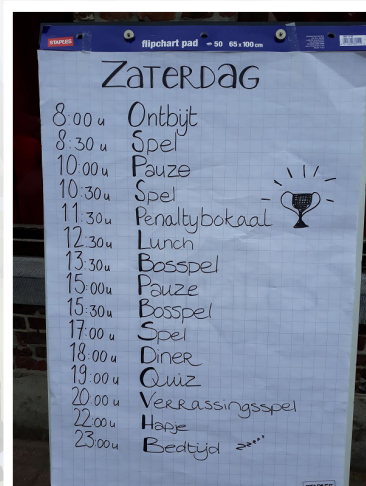 STAPLES flipchart pad 50 65 x 100 cm
ZATERDAG
8:00 u Ontbijt
8:30 u Spel
10:00 u Pauze
10:30 u Spel
11:30 u Penaltybokaal
12:30 u Lunch
13:30 u Bosspel
15:00 u Pauze
15:30 u Bosspel
17:00 u Spel
18:00 u Diner
19:00 u Quiz
20:00 u Verrassingsspel
22:00 u Hapje
23:00 u Bedtijd
STAPLES